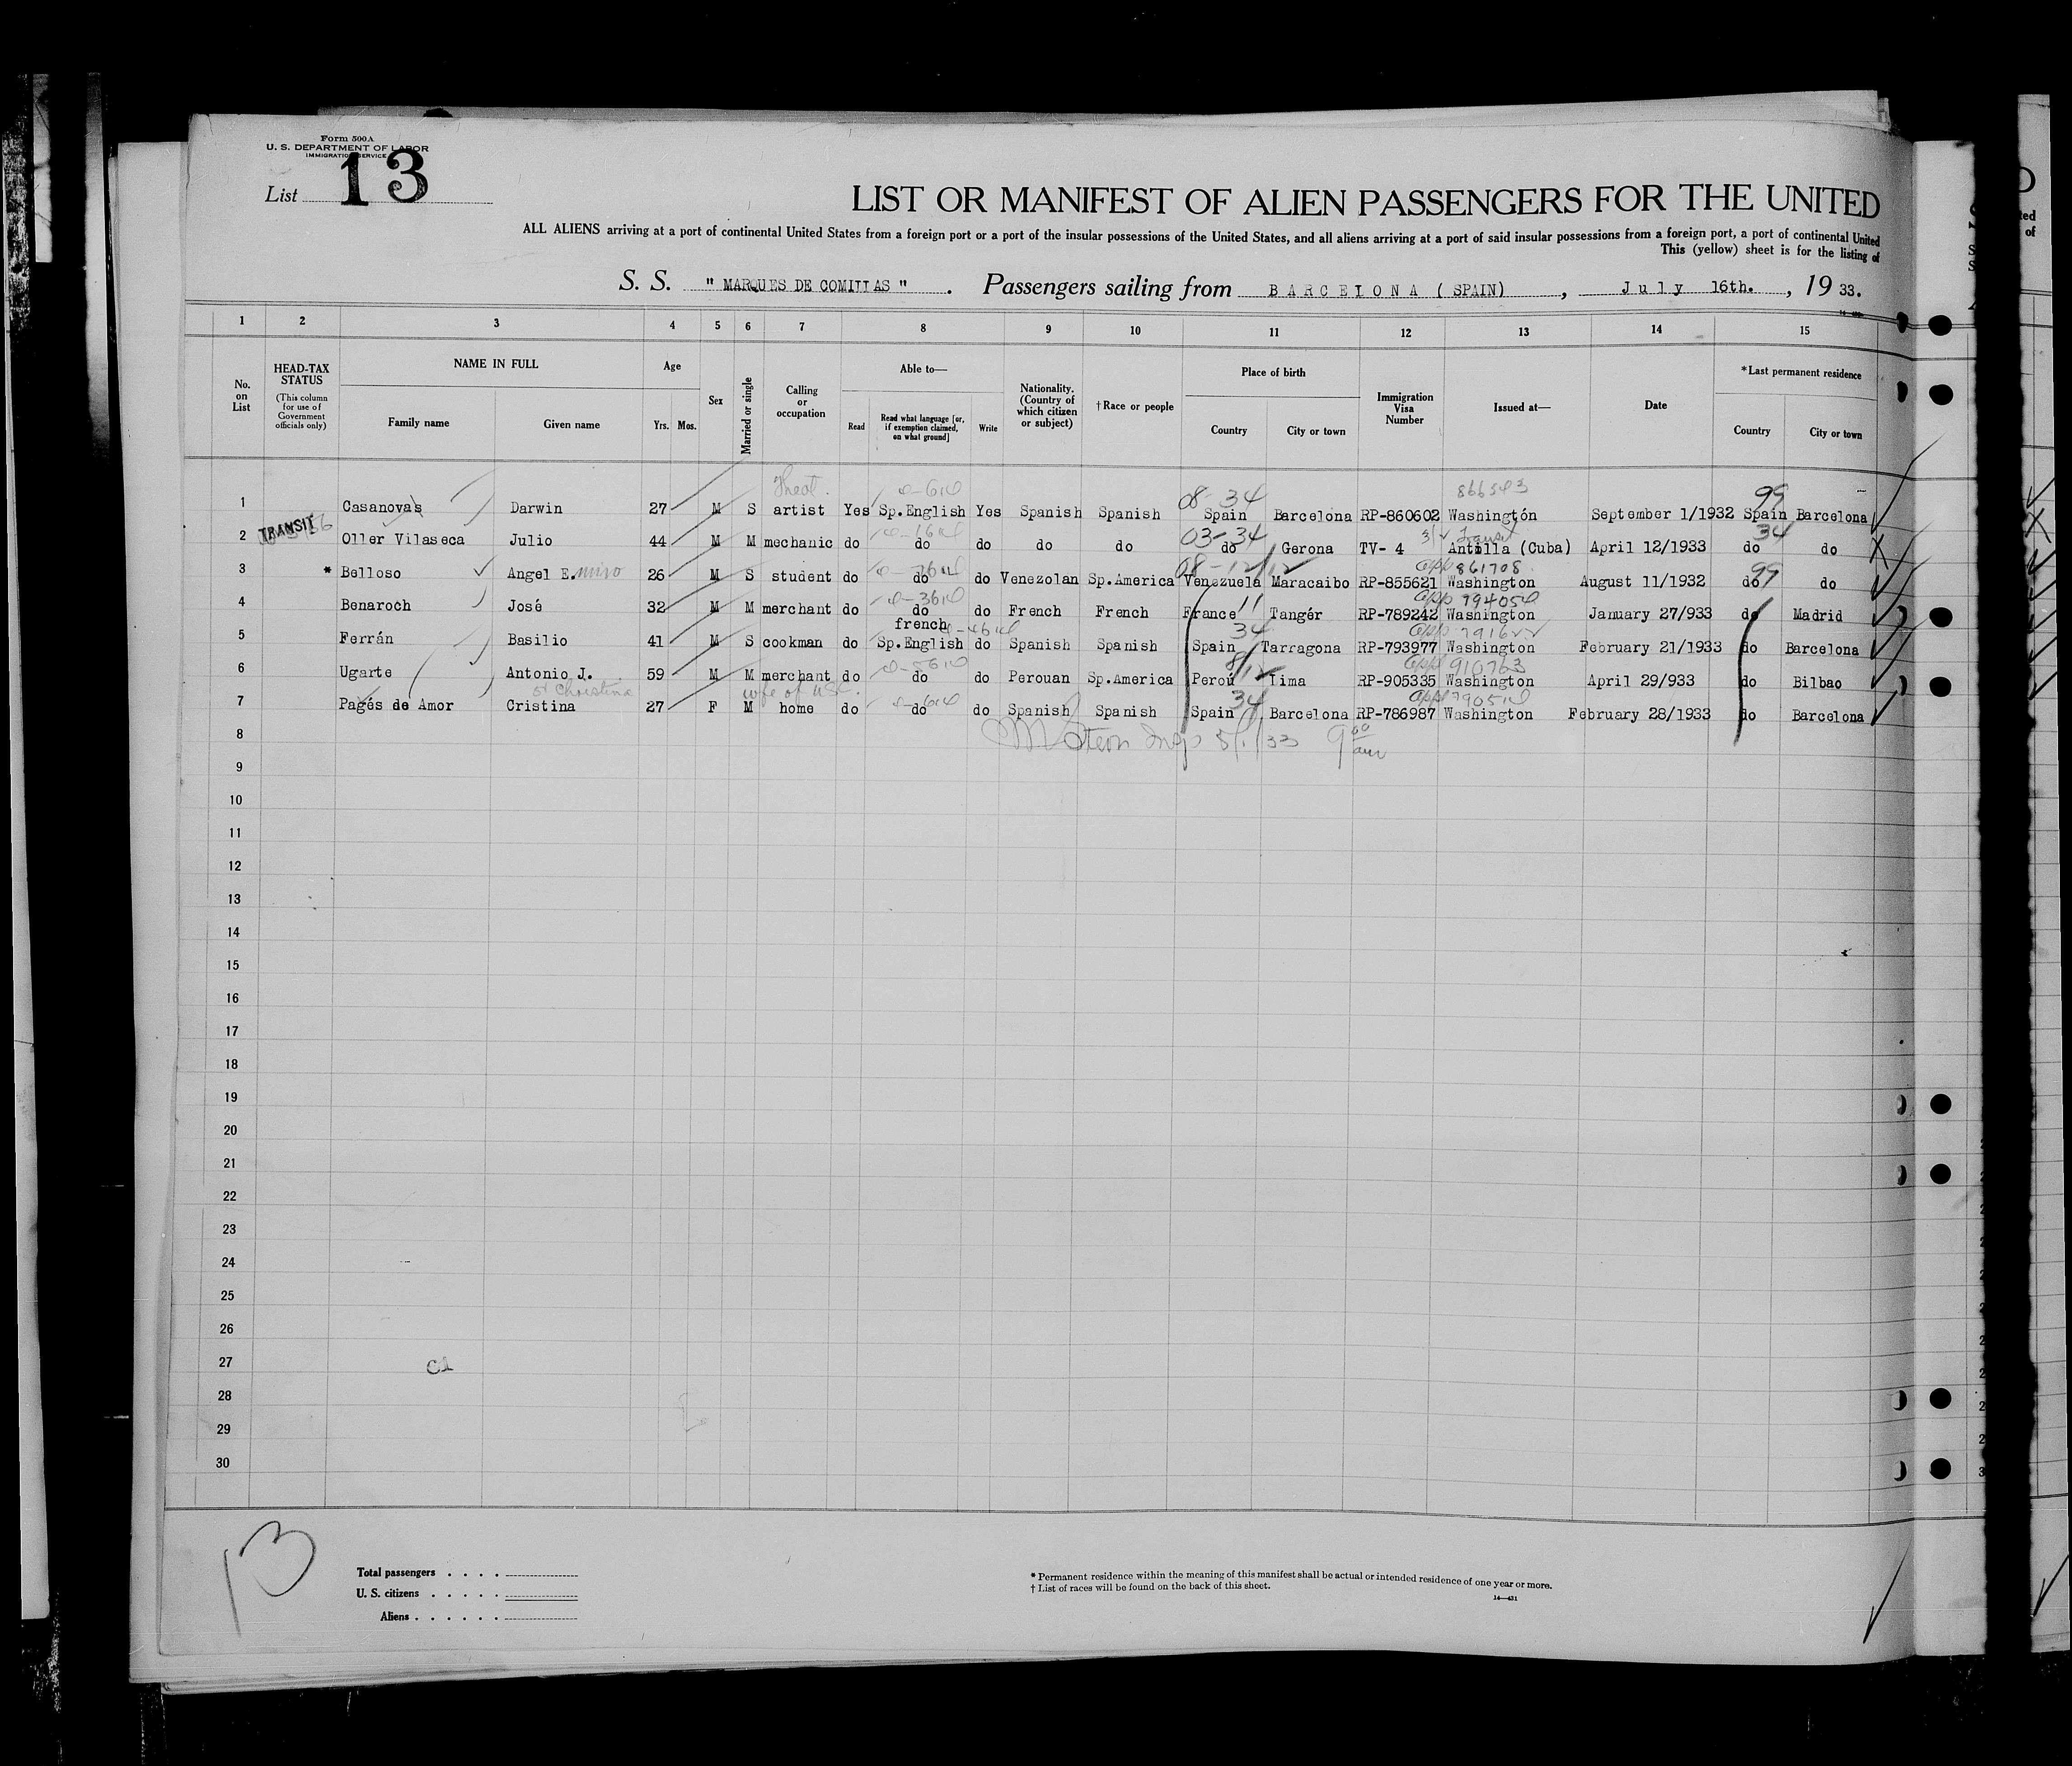 Form 500A
U. S. DEPARTMENT OF LABOR
IMMIGRATION SERVICE
List 13
LIST OR MANIFEST OF ALIEN PASSENGERS FOR THE UNITED
ALL ALIENS arriving at a port of continental United States from a foreign port or a port of the insular possessions of the United States, and all aliens arriving at a port of said insular possessions from a foreign port, a port of continental United
This (yellow) sheet is for the listing of
S. S. " MARQUES DE COMILLAS " . Passengers sailing from BARCELONA ( SPAIN) , July 16th. , 19 33.
1 2 3 4 5 6 7 8 9 10 11 12 13 14 15
No. on List
HEAD-TAX STATUS (This column for use of Government officials only)
NAME IN FULL
Family name Given name
Age
Yrs. Mos.
Sex
Married or single
Calling or occupation
Able to—
Read Read what language [or, if exemption claimed, on what ground] Write
Nationality. (Country of which citizen or subject)
†Race or people
Place of birth
Country City or town
Immigration Visa Number
Issued at—
Date
*Last permanent residence
Country City or town
Theat. 08-34 99
1 Casanovas Darwin 27 M S artist Yes Sp.English Yes Spanish Spanish Spain Barcelona RP-860602 Washingtón September 1/1932 Spain Barcelona
TRANSIT 03-34 Transit 34
2 Oller Vilaseca Julio 44 M M mechanic do do do do do do Gerona TV- 4 Antilla (Cuba) April 12/1933 do do
app 861708 99
3 * Belloso Angel E. 26 M S student do do do Venezolan Sp.America Venezuela Maracaibo RP-855621 Washington August 11/1932 do do
app 794054 11
4 Benaroch José 32 M M merchant do do do French French France Tangér RP-789242 Washington January 27/933 do Madrid
french
34
5 Ferrán Basilio 41 M S cookman do Sp.English do Spanish Spanish Spain Tarragona RP-793977 Washington February 21/1933 do Barcelona
app 910763
6 Ugarte Antonio J. 59 M M merchant do do do Perouan Sp.America Peroú Lima RP-905335 Washington April 29/933 do Bilbao
or Christina wife of USC. 34
7 Pagés de Amor Cristina 27 F M home do do do Spanish Spanish Spain Barcelona RP-786987 Washington February 28/1933 do Barcelona
8 Stern Insp 8/1/33 9 00 am
9
10
11
12
13
14
15
16
17
18
19
20
21
22
23
24
25
26
27
28
29
30
13
Total passengers . . . .
U. S. citizens . . . . .
Aliens . . . . . .
* Permanent residence within the meaning of this manifest shall be actual or intended residence of one year or more.
† List of races will be found on the back of this sheet.
14—431